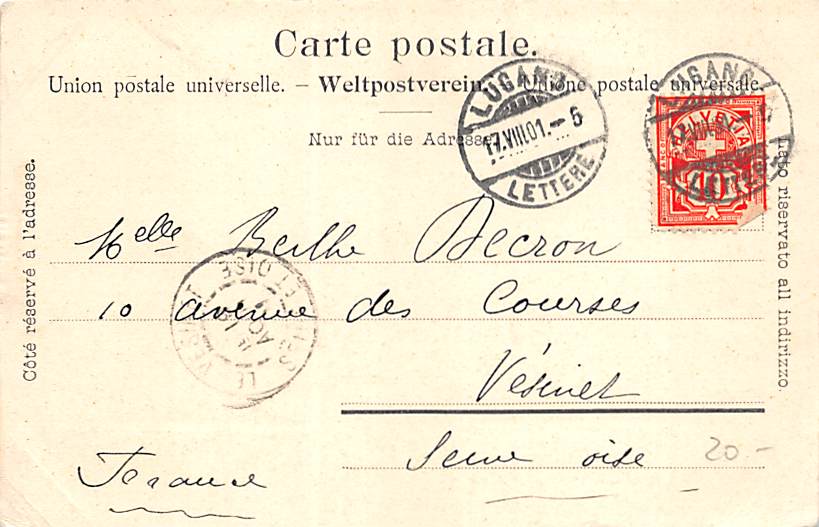 Carte postale.
Union postale universelle. – Weltpostverein. – Unione postale universale.
Nur für die Adresse.
Côté réservé à l'adresse.
Lato riservato all indirizzo.
LUGANO
17.VIII.01.–6
LETTERE
LUGANO
LETTERE
HELVETIA
10
Melle Berthe Decron
10 avenue des Courses
Vésinet
Seine oise
France
20-
LE VESINET
ET OISE
AOUT